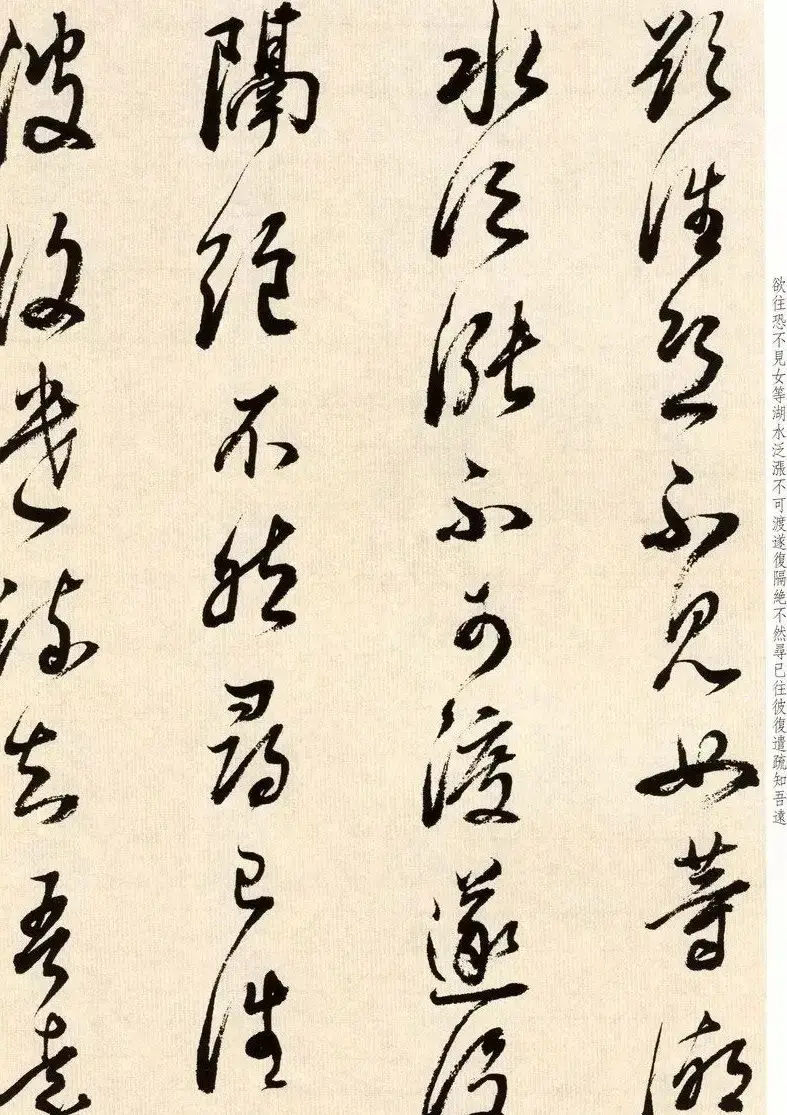 欲往恐不見女等湖
水泛漲不可渡遂復
隔絶不然尋已往
彼復遣疏知吾遠
欲往恐不見女等湖水泛漲不可渡遂復隔絶不然尋已往彼復遣疏知吾遠